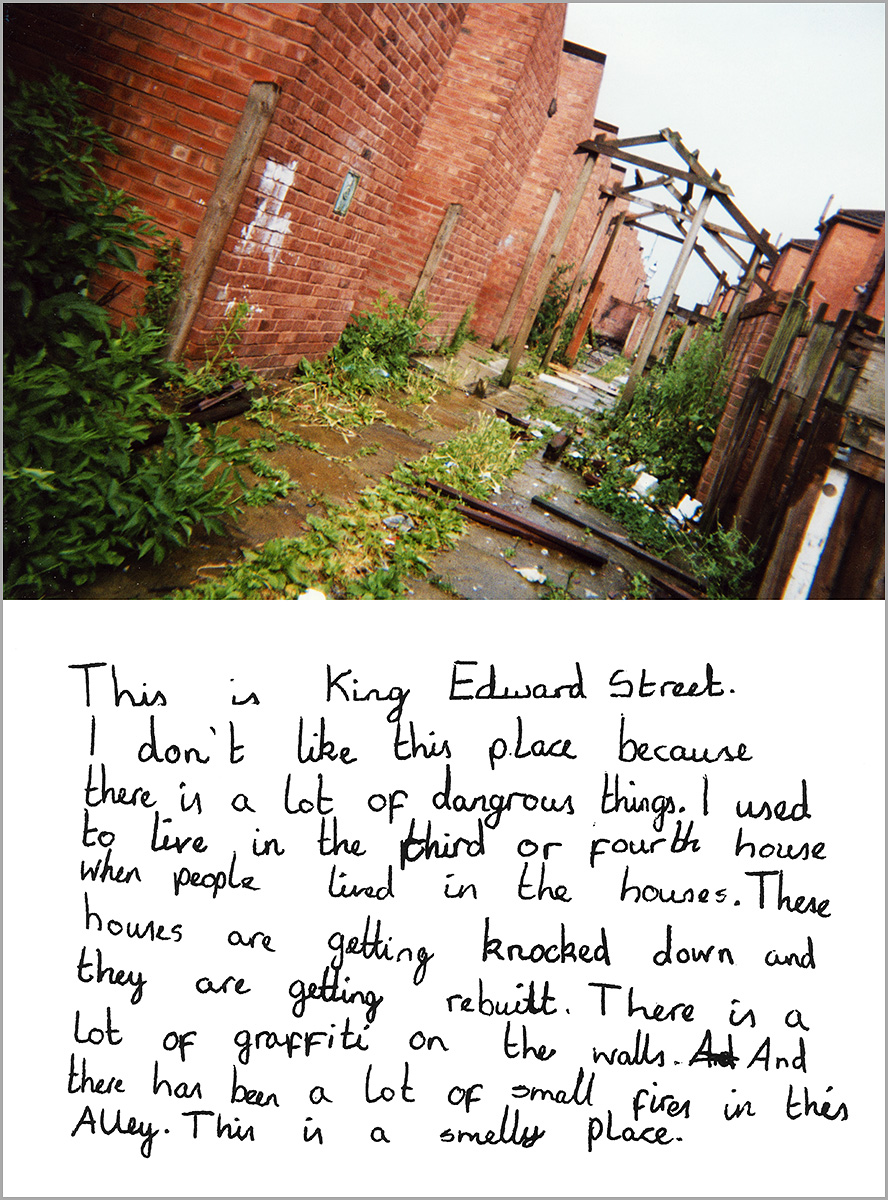 This is King Edward Street.
I don't like this place because
there is a lot of dangrous things. I used
to live in the third or fourth house
when people lived in the houses. These
houses are getting knocked down and
they are getting rebuilt. There is a
lot of graffiti on the walls. Ad And
there has been a lot of small fires in this
Alley. This is a smelly place.